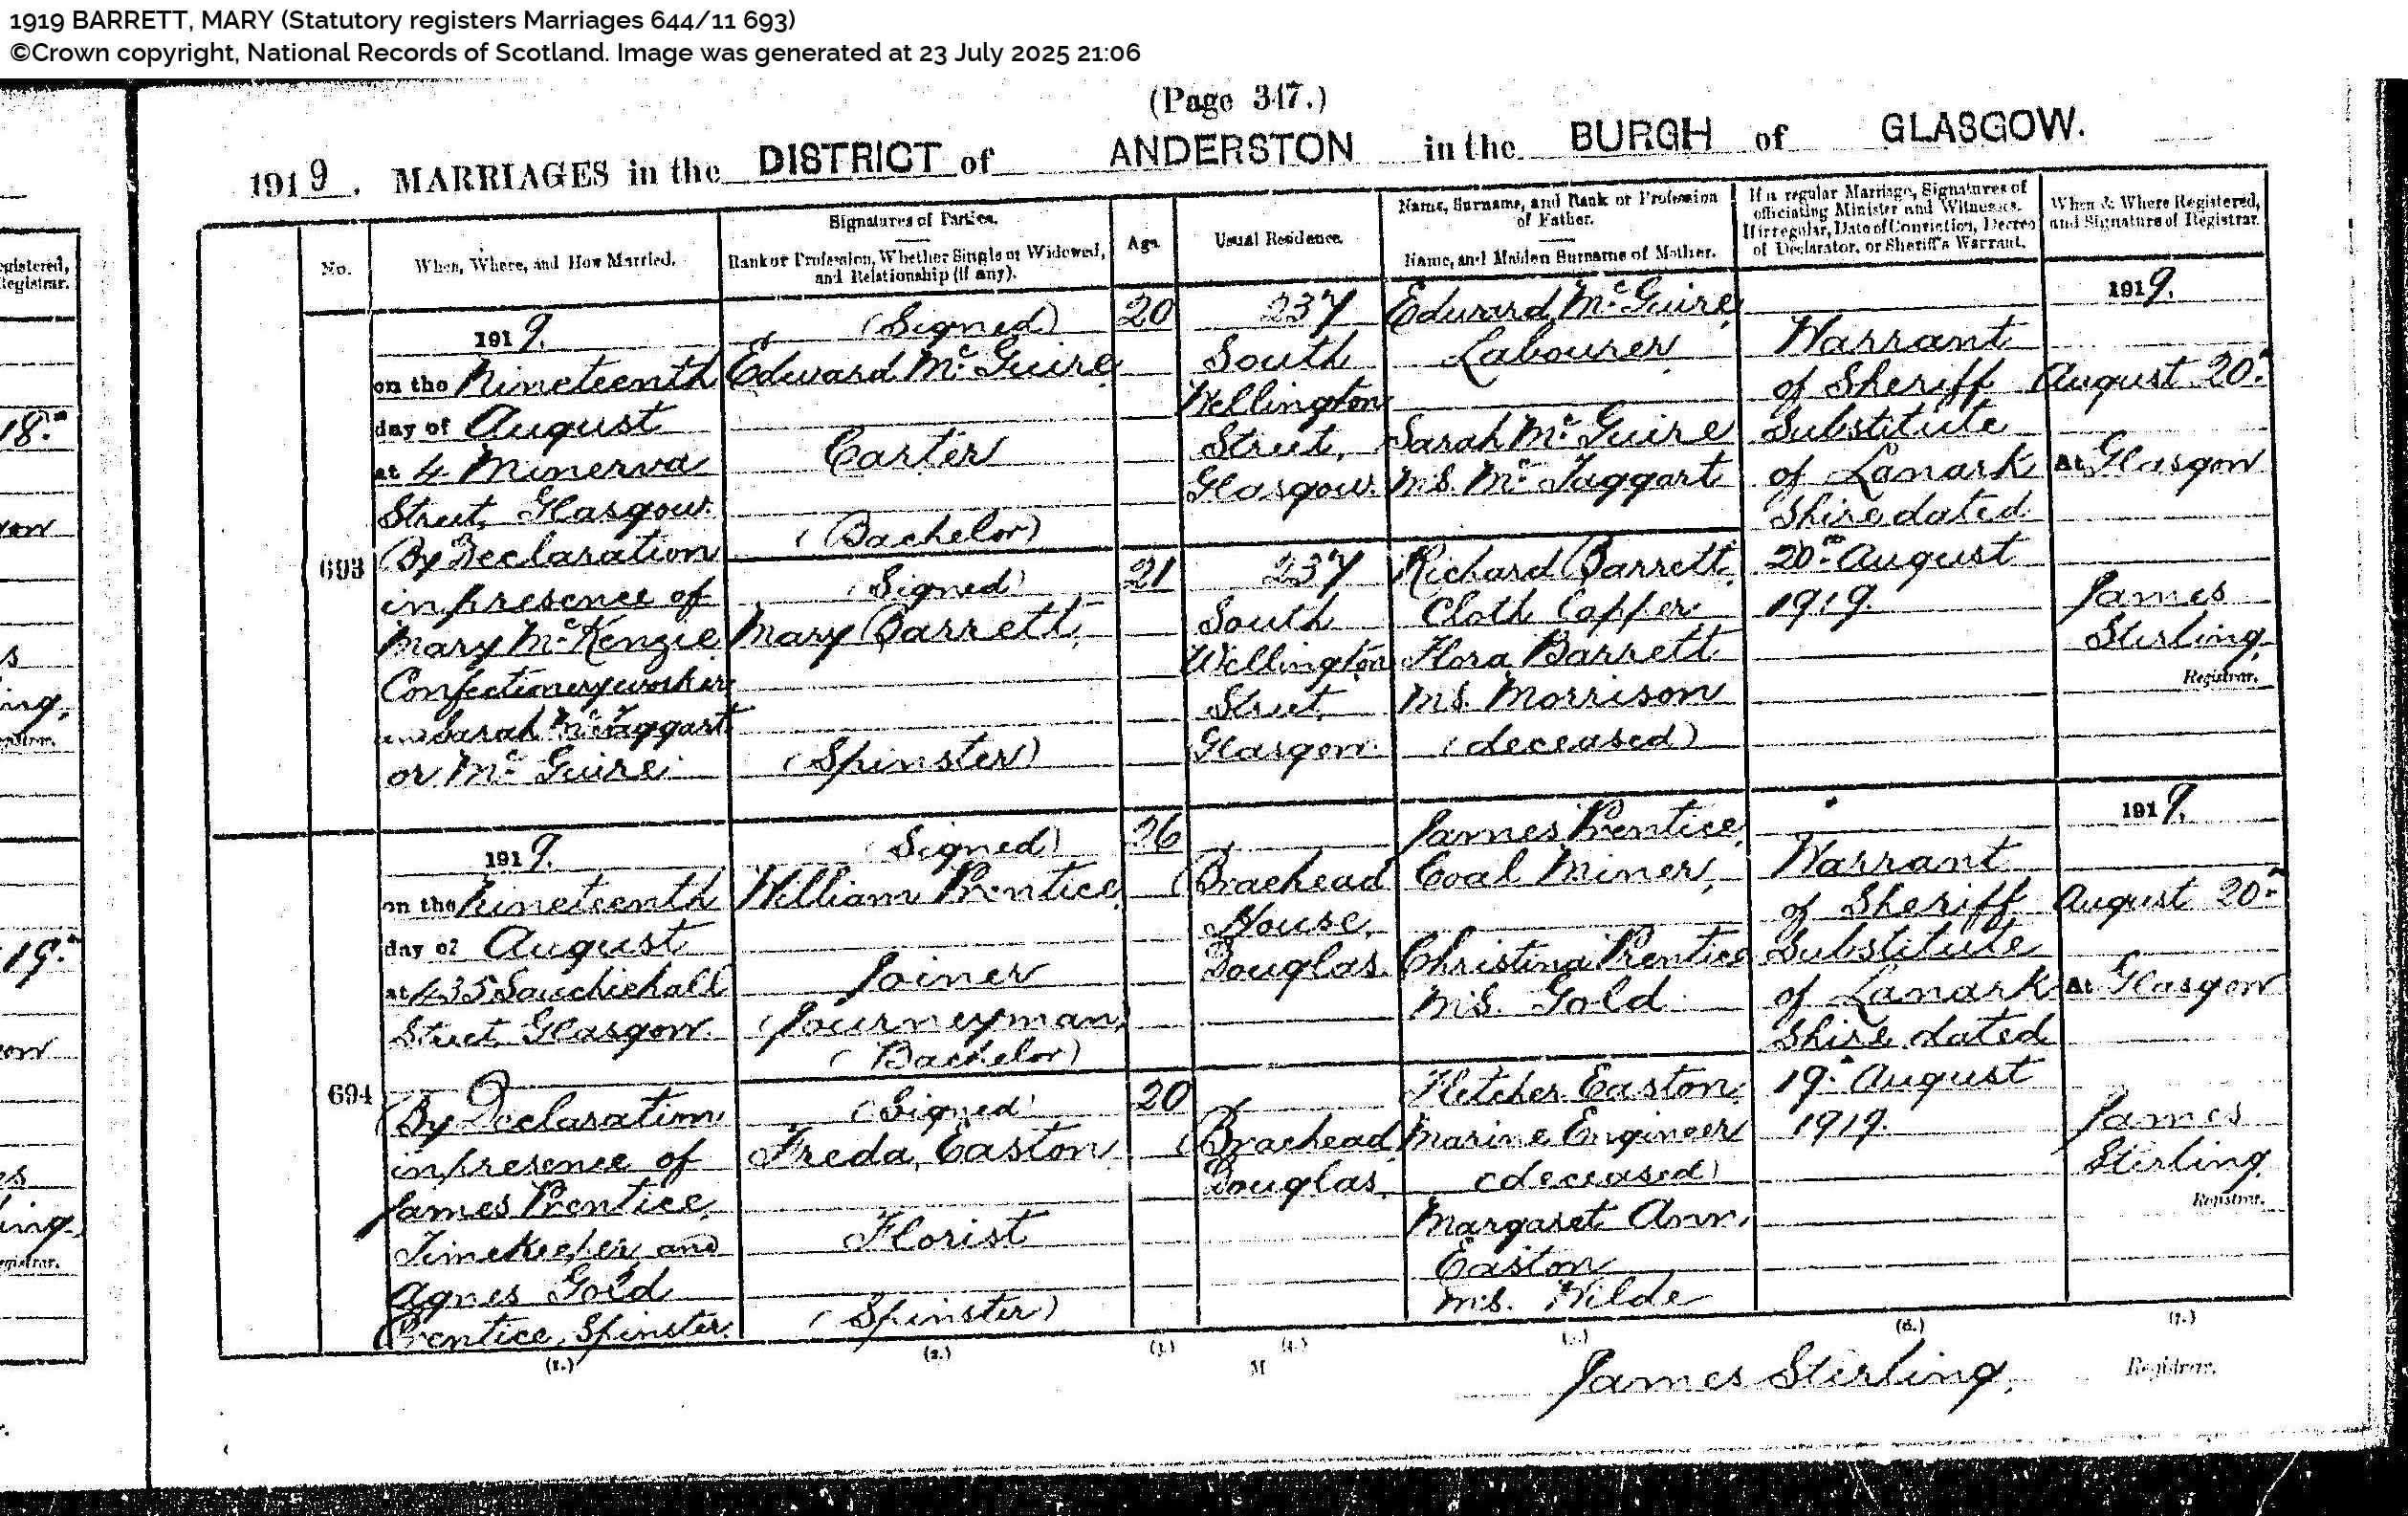 1919 BARRETT, MARY (Statutory registers Marriages 644/11 693)
©Crown copyright, National Records of Scotland. Image was generated at 23 July 2025 21:06
(Page 347.)
1919. MARRIAGES in the DISTRICT of ANDERSTON in the BURGH of GLASGOW.
No.
When, Where, and How Married.
Signatures of Parties.
Rank or Profession, Whether Single or Widowed,
and Relationship (if any).
Age.
Usual Residence.
Name, Surname, and Rank or Profession
of Father.
Name, and Maiden Surname of Mother.
If a regular Marriage, Signatures of
officiating Minister and Witnesses.
If irregular, Date of Conviction, Decree
of Declarator, or Sheriff's Warrant.
When & Where Registered,
and Signature of Registrar.
693
1919.
on the Nineteenth
day of August
at 4 Minerva
Street, Glasgow.
By Declaration
in presence of
Mary McKenzie
Confectionery worker
and Sarah McTaggart
or McGuire
(Signed)
Edward McGuire
Carter
(Bachelor)
20
237
South
Wellington
Street,
Glasgow.
Edward McGuire,
Labourer
Sarah McGuire
M.S. McTaggart
(Signed)
Mary Barrett
(Spinster)
21
237
South
Wellington
Street,
Glasgow.
Richard Barrett,
Cloth Lapper
Flora Barrett
M.S. Morrison
(deceased)
Warrant
of Sheriff
Substitute
of Lanark
Shire dated
20th August
1919.
1919.
August 20th
At Glasgow
James
Stirling
Registrar.
694
1919.
on the Nineteenth
day of August
at 435 Sauchiehall
Street, Glasgow.
By Declaration
in presence of
James Prentice,
Timekeeper and
Agnes Gold
Prentice, Spinster.
(Signed)
William Prentice
Joiner
(Journeyman)
(Bachelor)
26
Braehead
House,
Douglas.
James Prentice,
Coal Miner,
Christina Prentice
M.S. Gold
(Signed)
Freda Easton
Florist
(Spinster)
20
Braehead
Douglas.
Fletcher Easton,
Marine Engineer
(deceased)
Margaret Ann
Easton
M.S. Wilde
Warrant
of Sheriff
Substitute
of Lanark
Shire dated
19th August
1919.
1919.
August 20th
At Glasgow
James
Stirling
Registrar.
(1.) (2.) (3.) (4.) (5.) (6.) (7.)
M
James Stirling, Registrar.